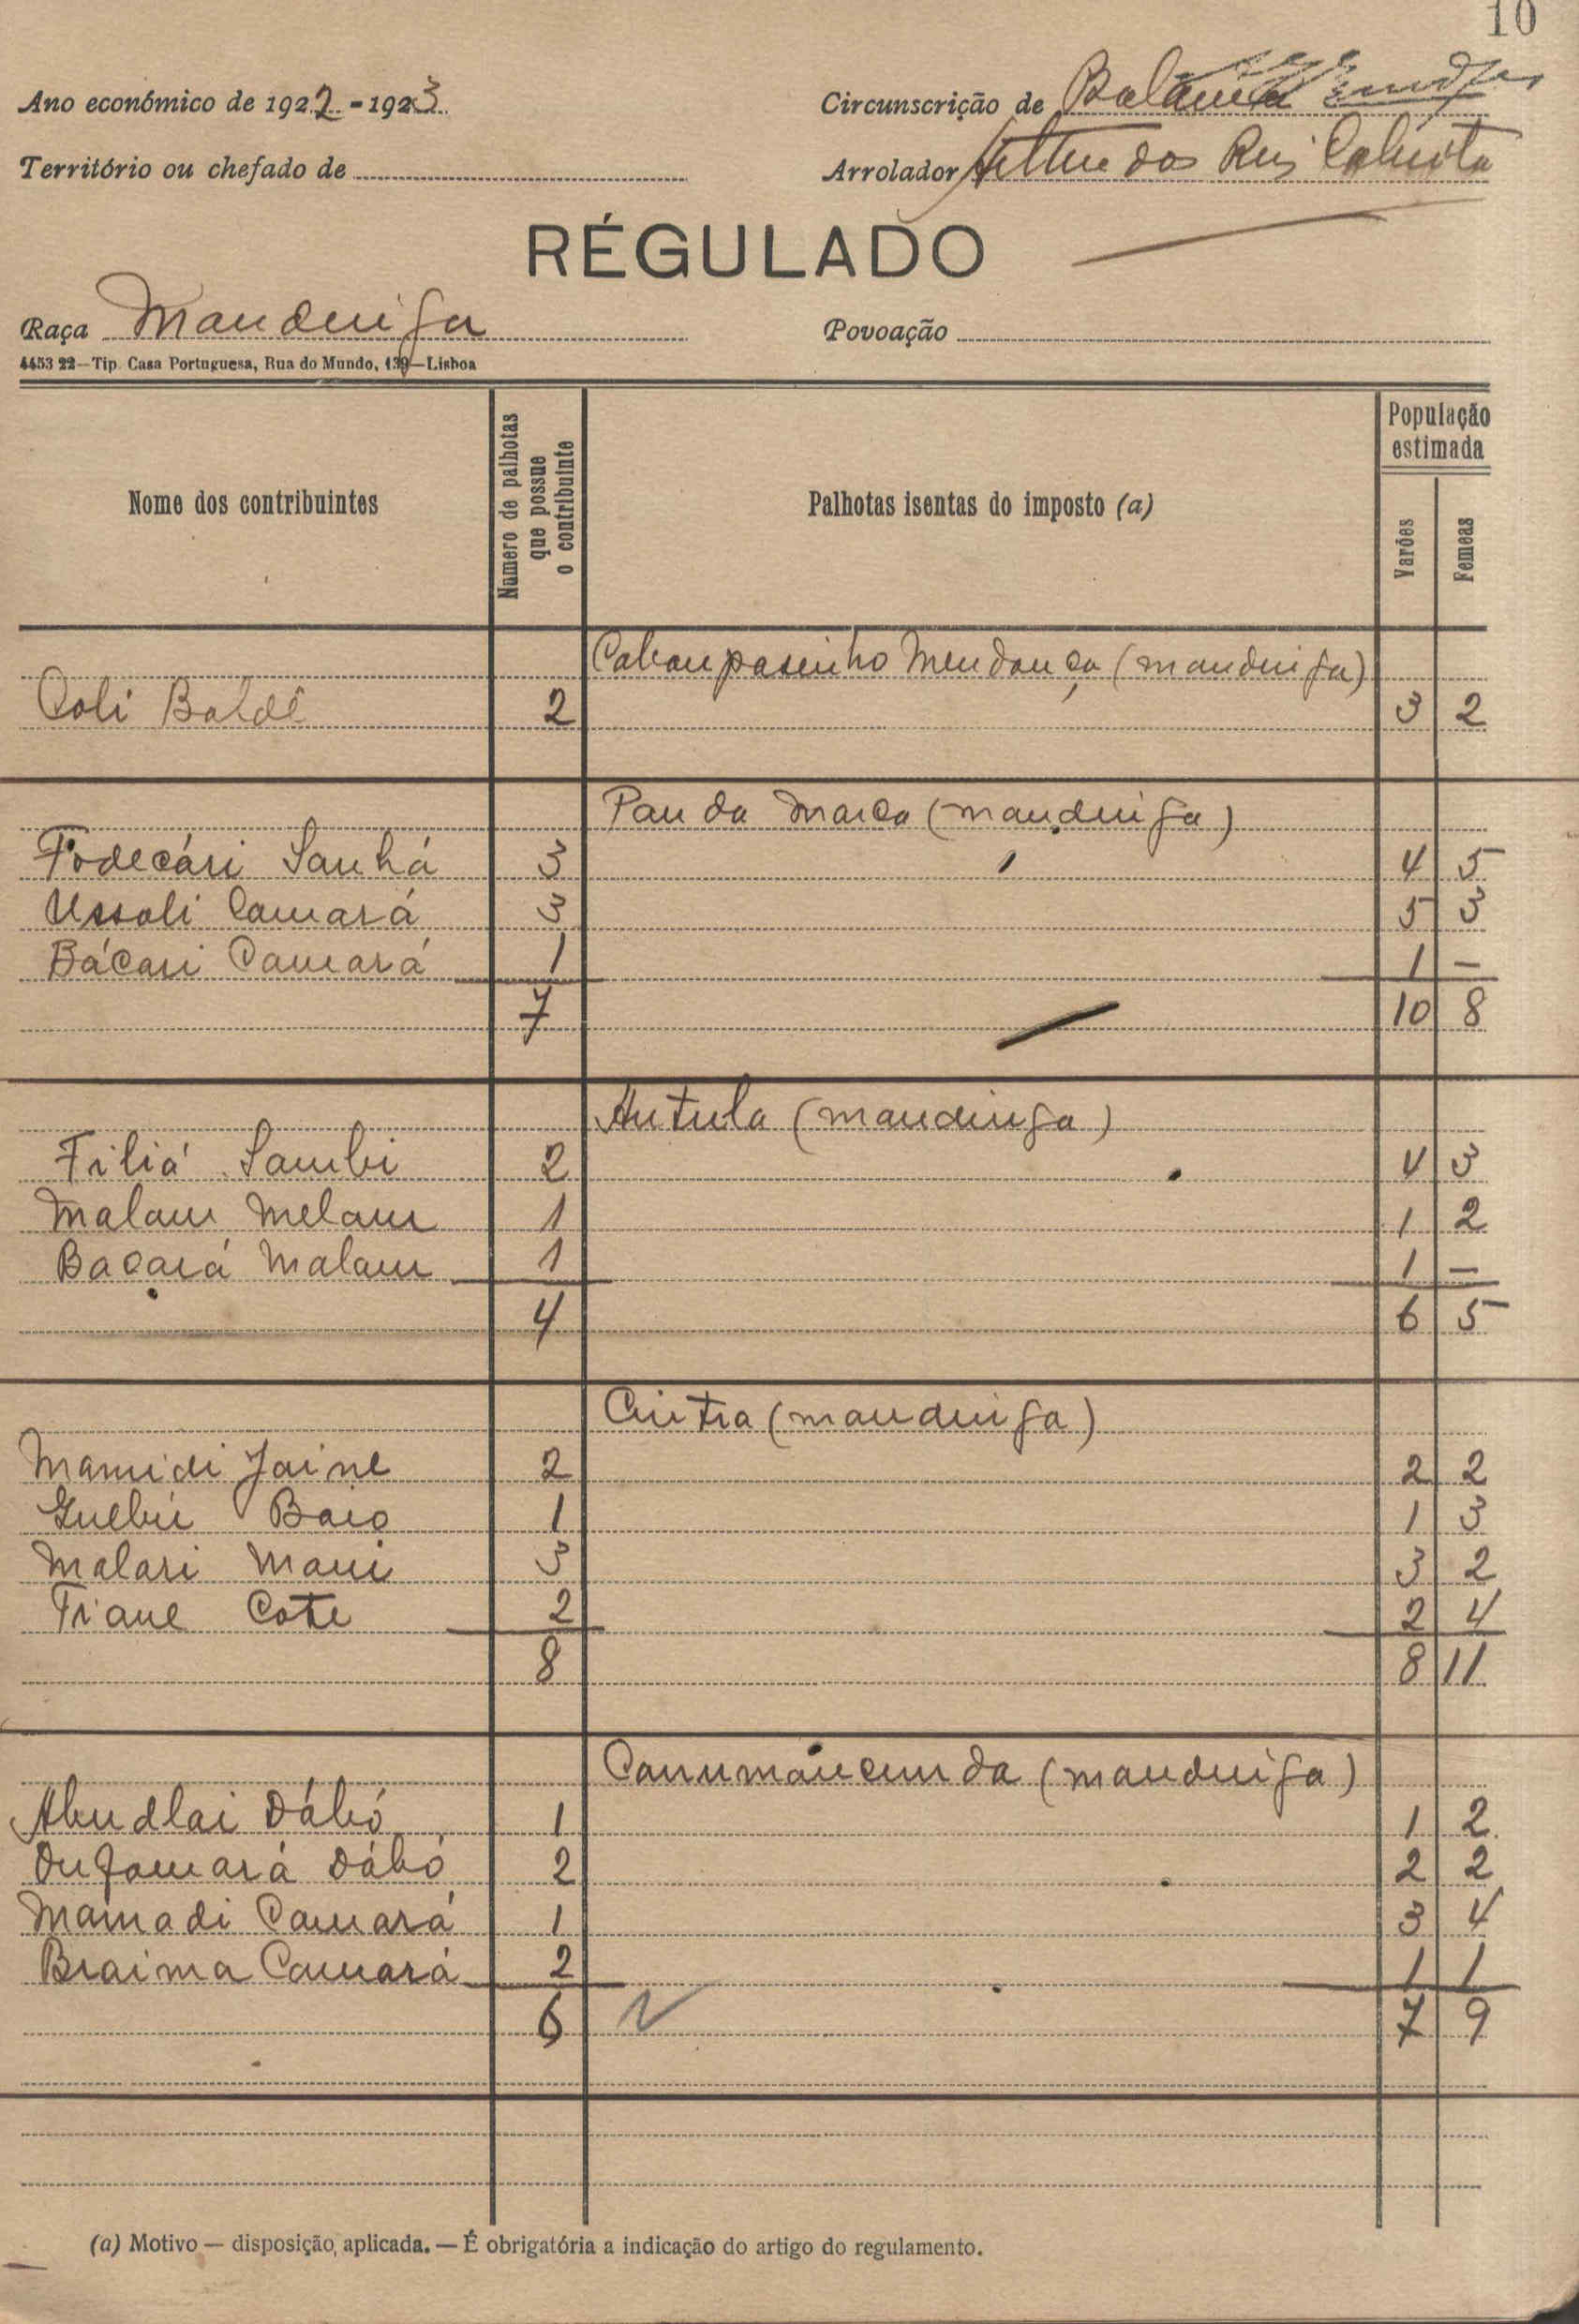 10
Ano económico de 1922-1923 Circunscrição de Balanta
Território ou chefado de Arrolador dos Reis
RÉGULADO
Raça Mandinga Povoação
4453 22—Tip. Casa Portuguesa, Rua do Mundo, 139—Lisboa
Nome dos contribuintes Numero de palhotas que possue o contribuinte Palhotas isentas do imposto (a) População estimada Varões Femeas
Mendonça (mandinga)
Coli Baldé 2 3 2
Pau da Marca (mandinga)
Fodecári Sanhá 3 4 5
Ussoli Camará 3 5 3
Bácari Camará 1 1 —
7 10 8
Antula (mandinga)
Filiá Sambi 2 4 3
Malam Melam 1 1 2
Bacará Malam 1 1 —
4 6 5
Cintra (mandinga)
Mamidi Jaine 2 2 2
Baio 1 1 3
Malari Mani 3 3 2
Tiane Cote 2 2 4
8 8 11
Canumáncunda (mandinga)
Abudlai Dábó 1 1 2
Dábó 2 2 2
Mamadi Camará 1 3 4
Braima Camará 2 1 1
6 7 9
(a) Motivo — disposição aplicada. — É obrigatória a indicação do artigo do regulamento.